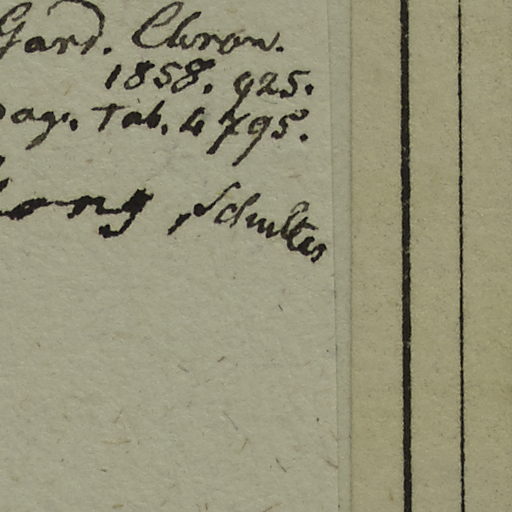 Gard. Chron.
1858. 925.
Tab. 4795.
Schultes